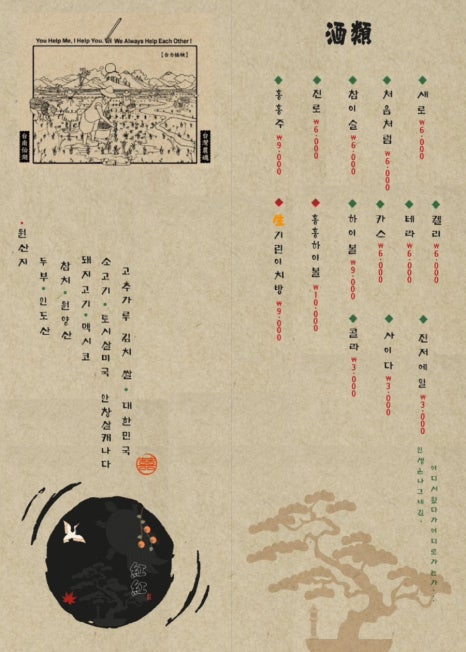 酒類
새로 ₩6.000
처음처럼 ₩6.000
참이슬 ₩6.000
진로 ₩6.000
홍홍주 ₩9.000
켈리 ₩6.000
테라 ₩6.000
카스 ₩6.000
하이볼 ₩9.000
홍홍하이볼 ₩10.000
生기린이치방 ₩9.000
진저에일 ₩3.000
사이다 ₩3.000
콜라 ₩3.000
어디서 왔다가 어디로 가는가,
인생은 나그네 길.
You Help Me, I Help You. We Always Help Each Other!
【合力協種】
台灣農魂
원산지
고추가루 김치 쌀 • 대한민국
소고기 • 토시살미국 안창살캐나다
돼지고기 • 멕시코
참치 • 원양산
두부 • 인도산
紅紅